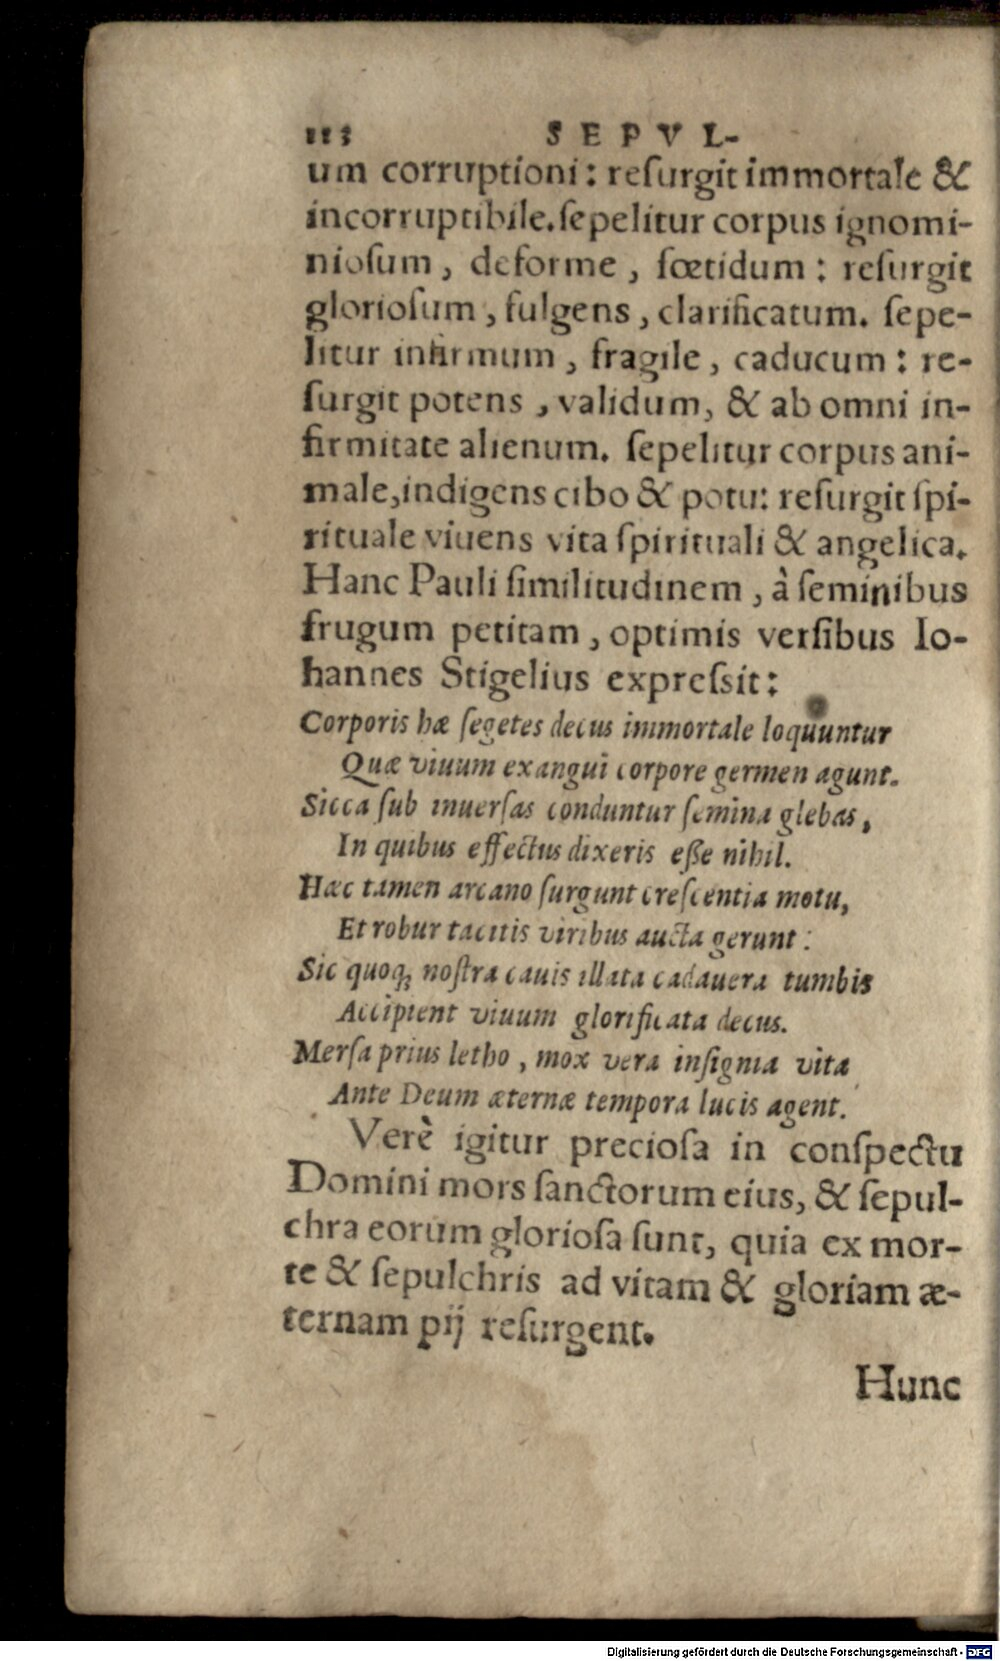 113 SEPVL-
um corruptioni: reſurgit immortale &
incorruptibile. ſepelitur corpus ignomi-
nioſum, deforme, fœtidum: reſurgit
glorioſum, fulgens, clarificatum. ſepe-
litur infirmum, fragile, caducum: re-
ſurgit potens, validum, & ab omni in-
firmitate alienum. ſepelitur corpus ani-
male, indigens cibo & potu: reſurgit ſpi-
rituale viuens vita ſpirituali & angelica.
Hanc Pauli ſimilitudinem, à ſeminibus
frugum petitam, optimis verſibus Io-
hannes Stigelius expreſsit:
Corporis hæ ſegetes decus immortale loquuntur
Quæ viuum exangui corpore germen agunt.
Sicca ſub inuerſas conduntur ſemina glebas,
In quibus effectus dixeris eſſe nihil.
Hæc tamen arcano ſurgunt creſcentia motu,
Et robur tacitis viribus aucta gerunt:
Sic quoq; noſtra cauis illata cadauera tumbis
Accipient viuum glorificata decus.
Merſa prius letho, mox vera inſignia vita
Ante Deum æternæ tempora lucis agent.
Verè igitur precioſa in conſpectu
Domini mors ſanctorum eius, & ſepul-
chra eorum glorioſa ſunt, quia ex mor-
te & ſepulchris ad vitam & gloriam æ-
ternam pij reſurgent.
Hunc
Digitalisierung gefördert durch die Deutsche Forschungsgemeinschaft - DFG